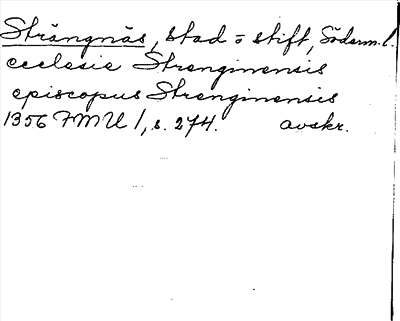 Strängnäs, stad o stift, Söderm. l.
ecclesie Strenginensis
episcopus Strenginensis
1356 FMU I, s. 274. avskr.